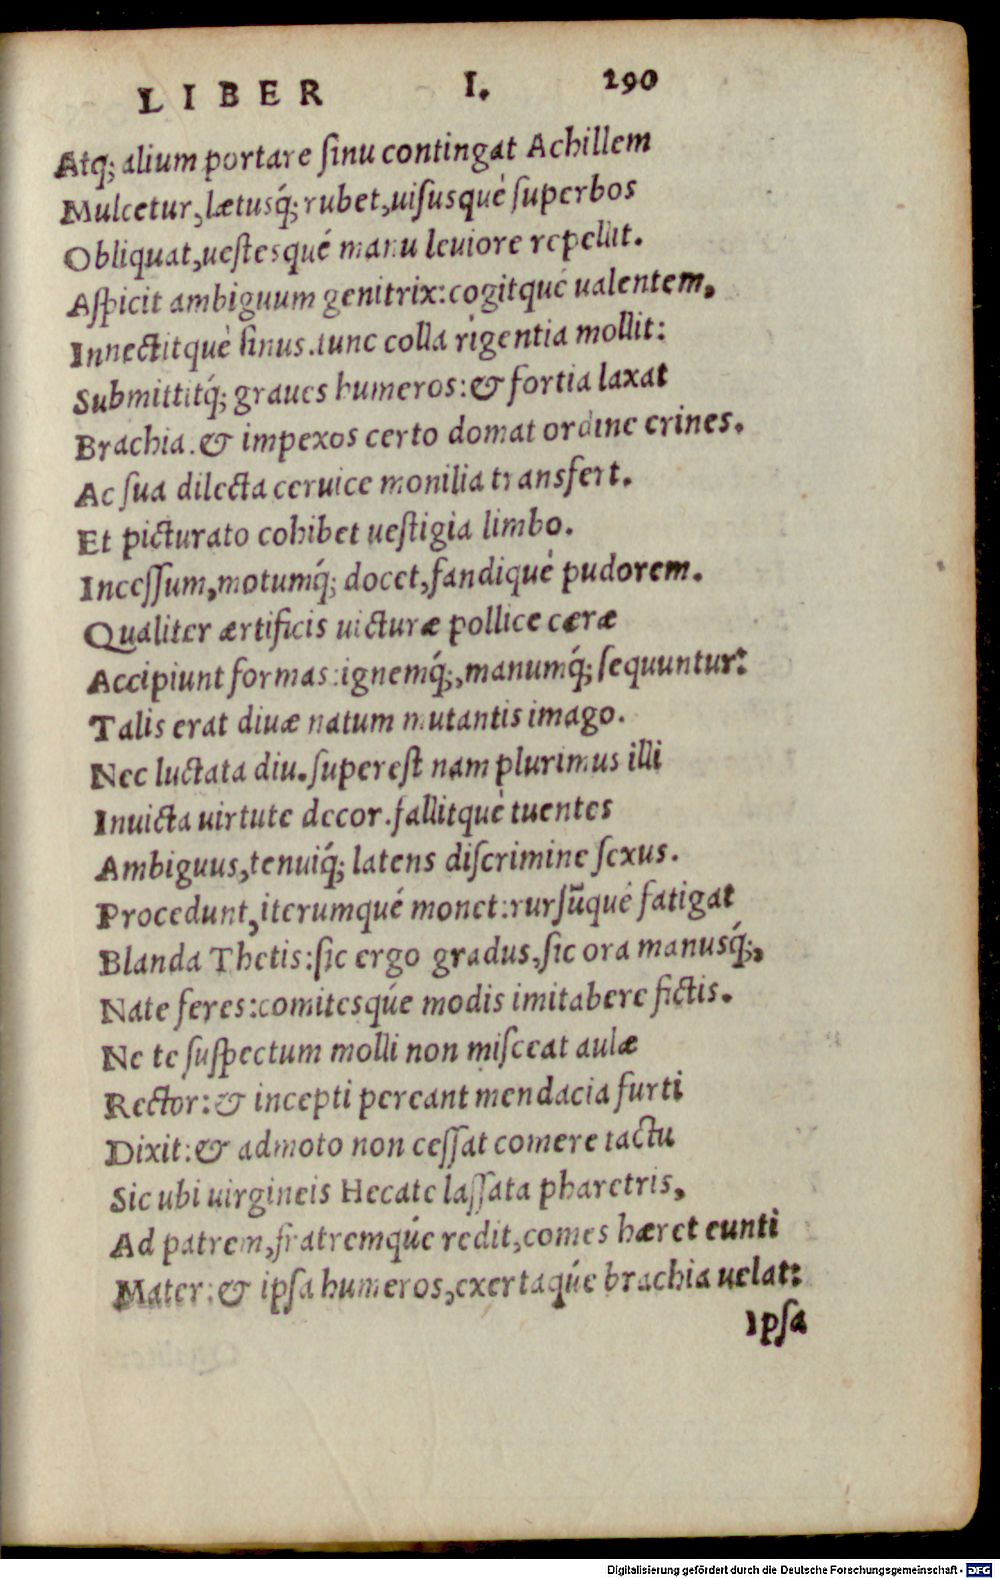 LIBER I. 290
Atq́; alium portare ſinu contingat Achillem
Mulcetur, lætusq́; rubet, uiſusquè ſuperbos
Obliquat, ueſtesqué manu leuiore repellit.
Aſpicit ambiguum genitrix: cogitqué ualentem,
Innectitquè ſinus. tunc colla rigentia mollit:
Submittitq́; graues humeros: & fortia laxat
Brachia. & impexos certo domat ordine crines.
Ac ſua dilecta ceruice monilia transfert.
Et picturato cohibet ueſtigia limbo.
Inceſſum, motumq́; docet, fandiquè pudorem.
Qualiter ærtificis uicturæ pollice ceræ
Accipiunt formas: ignemq́;, manumq́; ſequuntur:
Talis erat diuæ natum mutantis imago.
Nec luctata diu. ſupereſt nam plurimus illi
Inuicta uirtute decor. fallitquè tuentes
Ambiguus, tenuiq́; latens diſcrimine ſexus.
Procedunt, iterumqué monet: rurſũqué fatigat
Blanda Thetis: ſic ergo gradus, ſic ora manusq́;,
Nate feres: comitesq́ue modis imitabere fictis.
Ne te ſuſpectum molli non miſceat aulæ
Rector: & incepti pereant mendacia furti
Dixit: & admoto non ceſſat comere tactu
Sic ubi uirgineis Hecate laſſata pharetris,
Ad patrem, fratremq́ue redit, comes hæret eunti
Mater: & ipſa humeros, exertaq́ue brachia uelat:
Ipſa
Digitalisierung gefördert durch die Deutsche Forschungsgemeinschaft - DFG